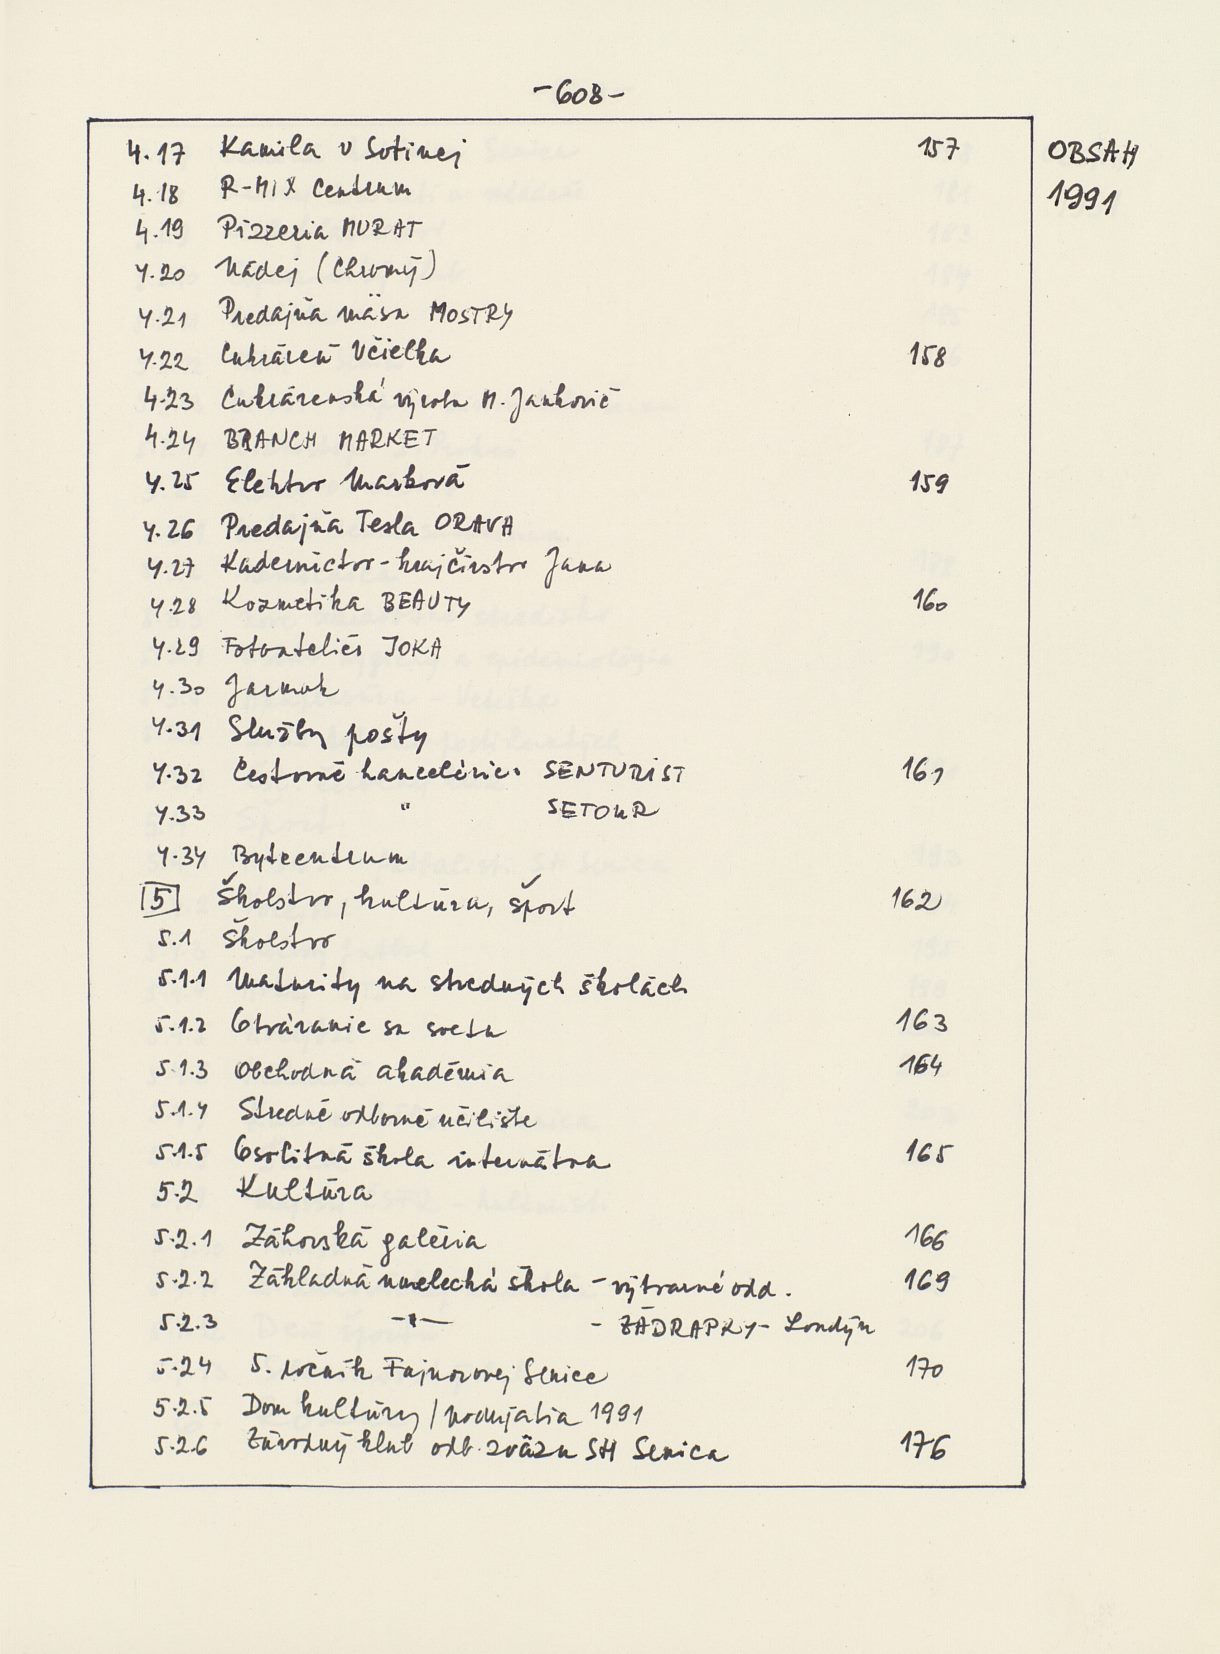 -608-
OBSAH
1991
4.17 Kamila v Sotinej 157
4.18 R-MIX Centrum
4.19 Pizzeria MURAT
4.20 Nádej (Chromý)
4.21 Predajňa mäsa MOSTRY
4.22 Cukráreň Včielka 158
4.23 Cukrárenská výroba M. Jankovič
4.24 BRANCH MARKET
4.25 Elektro Marková 159
4.26 Predajňa Tesla ORAVA
4.27 Kaderníctvo - krajčírstvo Jana
4.28 Kozmetika BEAUTY 160
4.29 Fotoateliér JOKA
4.30 Jarmok
4.31 Služby pošty
4.32 Cestovné kancelárie: SENTURIST 161
4.33 " SETOUR
4.34 Bytcentrum
5 Školstvo, kultúra, šport 162
5.1 Školstvo
5.1.1 Maturity na stredných školách
5.1.2 Otváranie sa svetu 163
5.1.3 Obchodná akadémia 164
5.1.4 Stredné odborné učilište
5.1.5 Osobitná škola internátna 165
5.2 Kultúra
5.2.1 Záhorská galéria 166
5.2.2 Základná umelecká škola - výtvarné odd. 169
5.2.3 -"- - ZÁDRAPKY - Londýn
5.24 5. ročník Fajnorovej Senice 170
5.2.5 Dom kultúry / podujatia 1991
5.2.6 Závodný klub odb. zväzu SH Senica 176